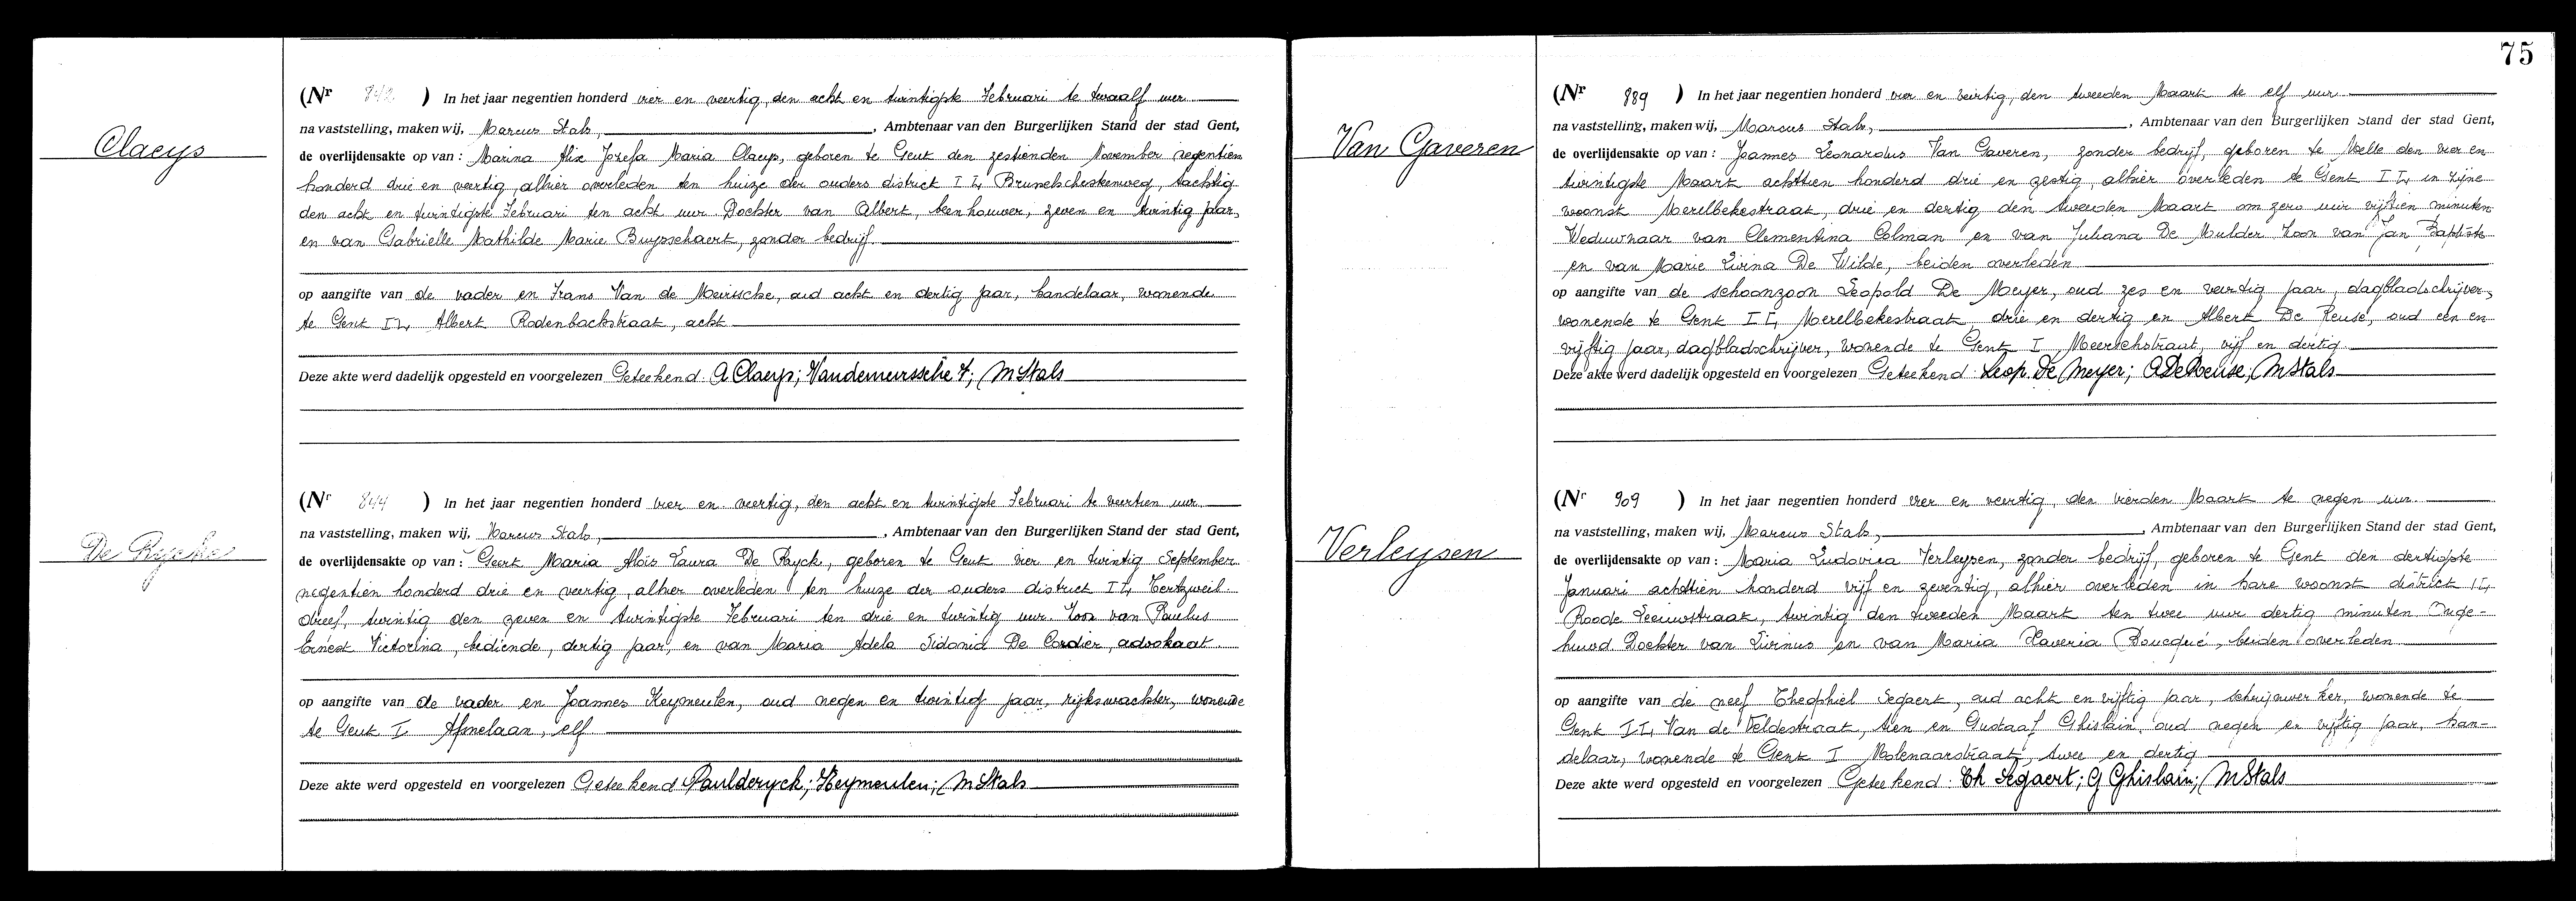 Claeys
(Nr 842 ) In het jaar negentien honderd vier en veertig, den acht en twintigste Februari te twaalf uur
na vaststelling, maken wij, Marcus Stals, , Ambtenaar van den Burgerlijken Stand der stad Gent,
de overlijdensakte op van : Marina Alix Jozefa Maria Claeys, geboren te Gent den zestienden November negentien
honderd drie en veertig, alhier overleden ten huize der ouders district II, tachtig
den acht en twintigste Februari ten acht uur. Dochter van Albert, beenhouwer, zeven en twintig jaar,
en van Gabrielle Mathilde Marie Buysschaert, zonder bedrijf.
op aangifte van de vader en Frans Van de Meirssche, oud acht en dertig jaar, handelaar, wonende
te Gent II, Albert Rodenbachstraat, acht
Deze akte werd dadelijk opgesteld en voorgelezen Geteekend: A Claeys; Vandemeirssche F; M Stals
De Rycke
(Nr 844 ) In het jaar negentien honderd vier en veertig, den acht en twintigste Februari te veertien uur
na vaststelling, maken wij, Marcus Stals, , Ambtenaar van den Burgerlijken Stand der stad Gent,
de overlijdensakte op van : Geert Maria Aloïs Laura De Ryck, geboren te Gent vier en twintig September
negentien honderd drie en veertig, alhier overleden ten huize der ouders district II,
dreef, twintig den zeven en twintigste Februari ten drie en twintig uur. Zoon van Paulus
Ernest Victorina, bediende, dertig jaar, en van Maria Adela Sidonia De Cordier, advokaat.
op aangifte van de vader en Joannes Keymeulen, oud negen en twintig jaar, rijkswachter, wonende
te Gent I Afsnelaan, elf.
Deze akte werd opgesteld en voorgelezen Geteekend Paulderyck; Keymeulen; M Stals
75
Van Gaveren
(Nr 889 ) In het jaar negentien honderd vier en veirtig, den tweeden Maart te elf uur
na vaststelling, maken wij, Marcus Stals, , Ambtenaar van den Burgerlijken Stand der stad Gent,
de overlijdensakte op van : Joannes Leonardus Van Gaveren, zonder bedrijf, geboren te Melle den vier en
twintigste Maart achttien honderd drie en zestig, alhier overleden te Gent II, in zijne
woonst Merelbekestraat, drie en dertig den tweeden Maart om zero uur vijftien minuten.
Weduwnaar van Clementina Colman en van Juliana De Mulder Zoon van Jan Baptiste
en van Marie Livina De Wilde, beiden overleden
op aangifte van de schoonzoon Leopold De Meyer, oud zes en veertig jaar, dagbladschrijver,
wonende te Gent II, Merelbekestraat, drie en dertig en Albert De Reuse, oud een en
vijftig jaar, dagbladschrijver, wonende te Gent I Meerschstraat, vijf en dertig.
Deze akte werd dadelijk opgesteld en voorgelezen Geteekend: Leop. De Meyer; A De Reuse; M Stals
Verleysen
(Nr 909 ) In het jaar negentien honderd vier en veertig, den vierden Maart te negen uur.
na vaststelling, maken wij, Marcus Stals, , Ambtenaar van den Burgerlijken Stand der stad Gent,
de overlijdensakte op van : Maria Ludovica Verleysen, zonder bedrijf, geboren te Gent den dertigste
Januari achttien honderd vijf en zeventig, alhier overleden in hare woonst district II,
Roode Leeuwstraat, twintig den tweeden Maart ten twee uur dertig minuten Onge-
huwd. Dochter van Livinus en van Maria Xaveria Boucqué, beiden overleden
op aangifte van de neef Theophiel Segaert, oud acht en vijftig jaar, schrijnwerker, wonende te
Gent II, Van de Veldestraat, tien en Gustaaf Ghislain, oud negen en vijftig jaar, han-
delaar, wonende te Gent I Molenaarstraat, twee en dertig
Deze akte werd opgesteld en voorgelezen Geteekend: Th Segaert; G Ghislain; M Stals